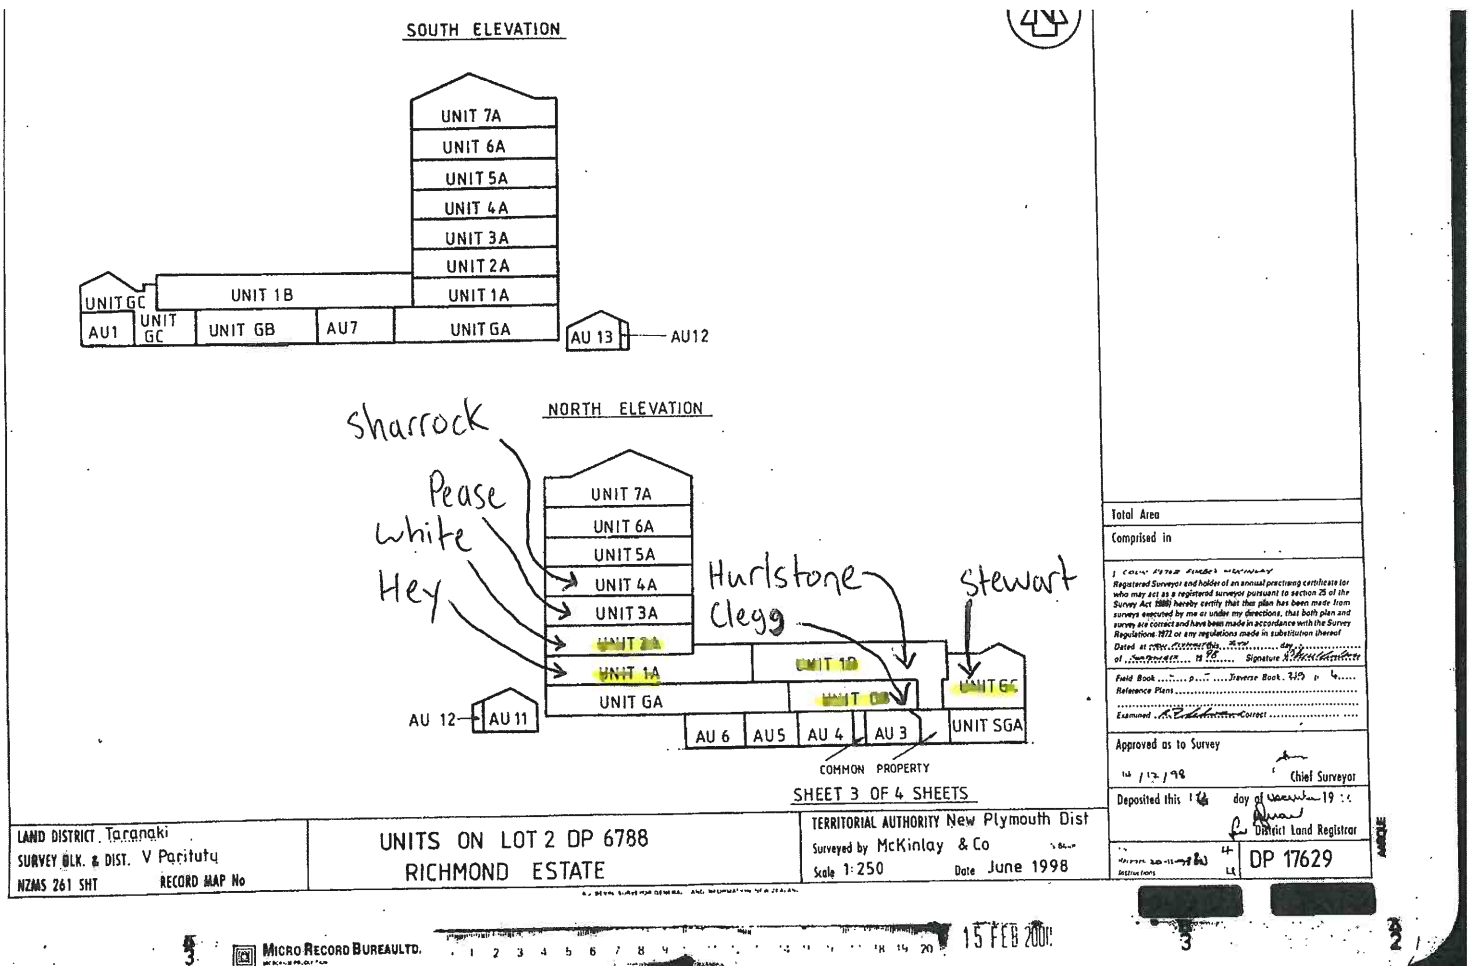 SOUTH ELEVATION
UNIT 7A
UNIT 6A
UNIT 5A
UNIT 4A
UNIT 3A
UNIT 2A
UNIT GC
UNIT 1B
UNIT 1A
AU1
UNIT GC
UNIT GB
AU7
UNIT GA
AU 13
AU12
NORTH ELEVATION
Sharrock
Pease
White
Hey
UNIT 7A
UNIT 6A
UNIT 5A
UNIT 4A
UNIT 3A
UNIT 2A
UNIT 1A
UNIT GA
Hurlstone
Clegg
Stewart
UNIT GC
AU 12
AU 11
AU 6
AU5
AU 4
AU 3
UNIT SGA
COMMON PROPERTY
SHEET 3 OF 4 SHEETS
Total Area
Comprised in
Registered Surveyor and holder of an annual practising certificate for
who may act as a registered surveyor pursuant to section 25 of the
Survey Act 1986) hereby certify that this plan has been made from
surveys executed by me or under my directions, that both plan and
survey are correct and have been made in accordance with the Survey
Regulations 1972 or any regulations made in substitution thereof
Dated at this day
of 1998 Signature
Field Book p Traverse Book p
Reference Plans
Examined Correct
Approved as to Survey
14/12/98
Chief Surveyor
Deposited this day of 19
District Land Registrar
DP 17629
LAND DISTRICT Taranaki
SURVEY BLK. & DIST. V Paritutu
NZMS 261 SHT RECORD MAP No
UNITS ON LOT 2 DP 6788
RICHMOND ESTATE
TERRITORIAL AUTHORITY New Plymouth Dist
Surveyed by McKinlay & Co
Scale 1:250 Date June 1998
MICRO RECORD BUREAU LTD.
1 2 3 4 5 6 7 8 9
18 19 20
15 FEB
3
2